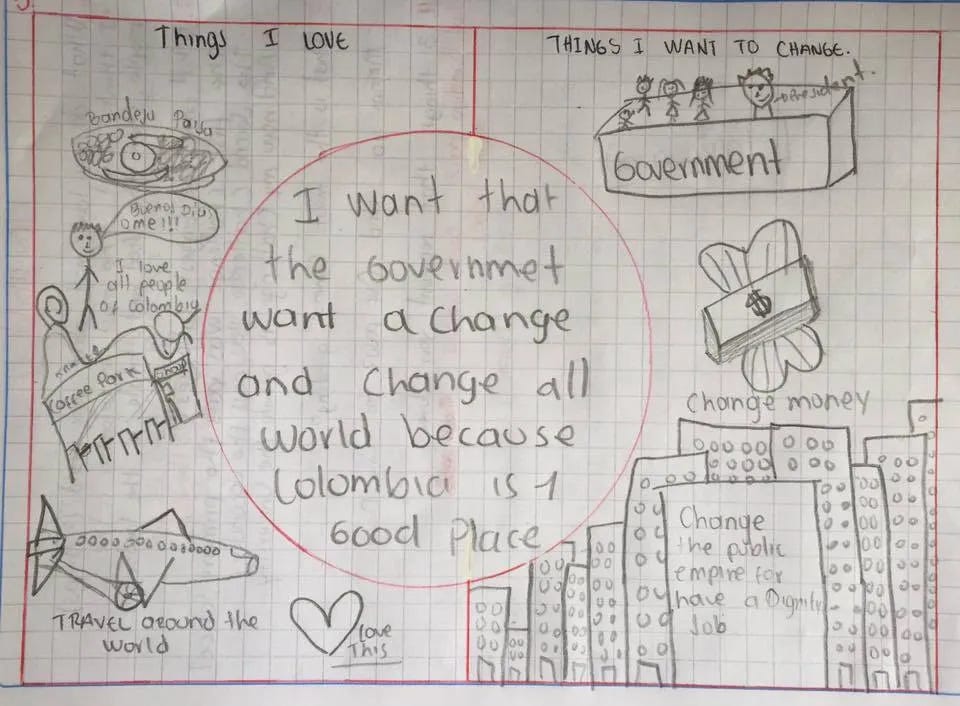 Things I LOVE
Bandeja Paisa
Buenos Dias
ome!!!
I love
all people
of colombia
Coffee Park
TRAVEL around the
world
love
This
I want that
the Governmet
want a change
and change all
world because
Colombia is 1
Good Place
THINGS I WANT TO CHANGE.
President.
Government
$
change money
Change
the public
empire for
have a Dignity
Job